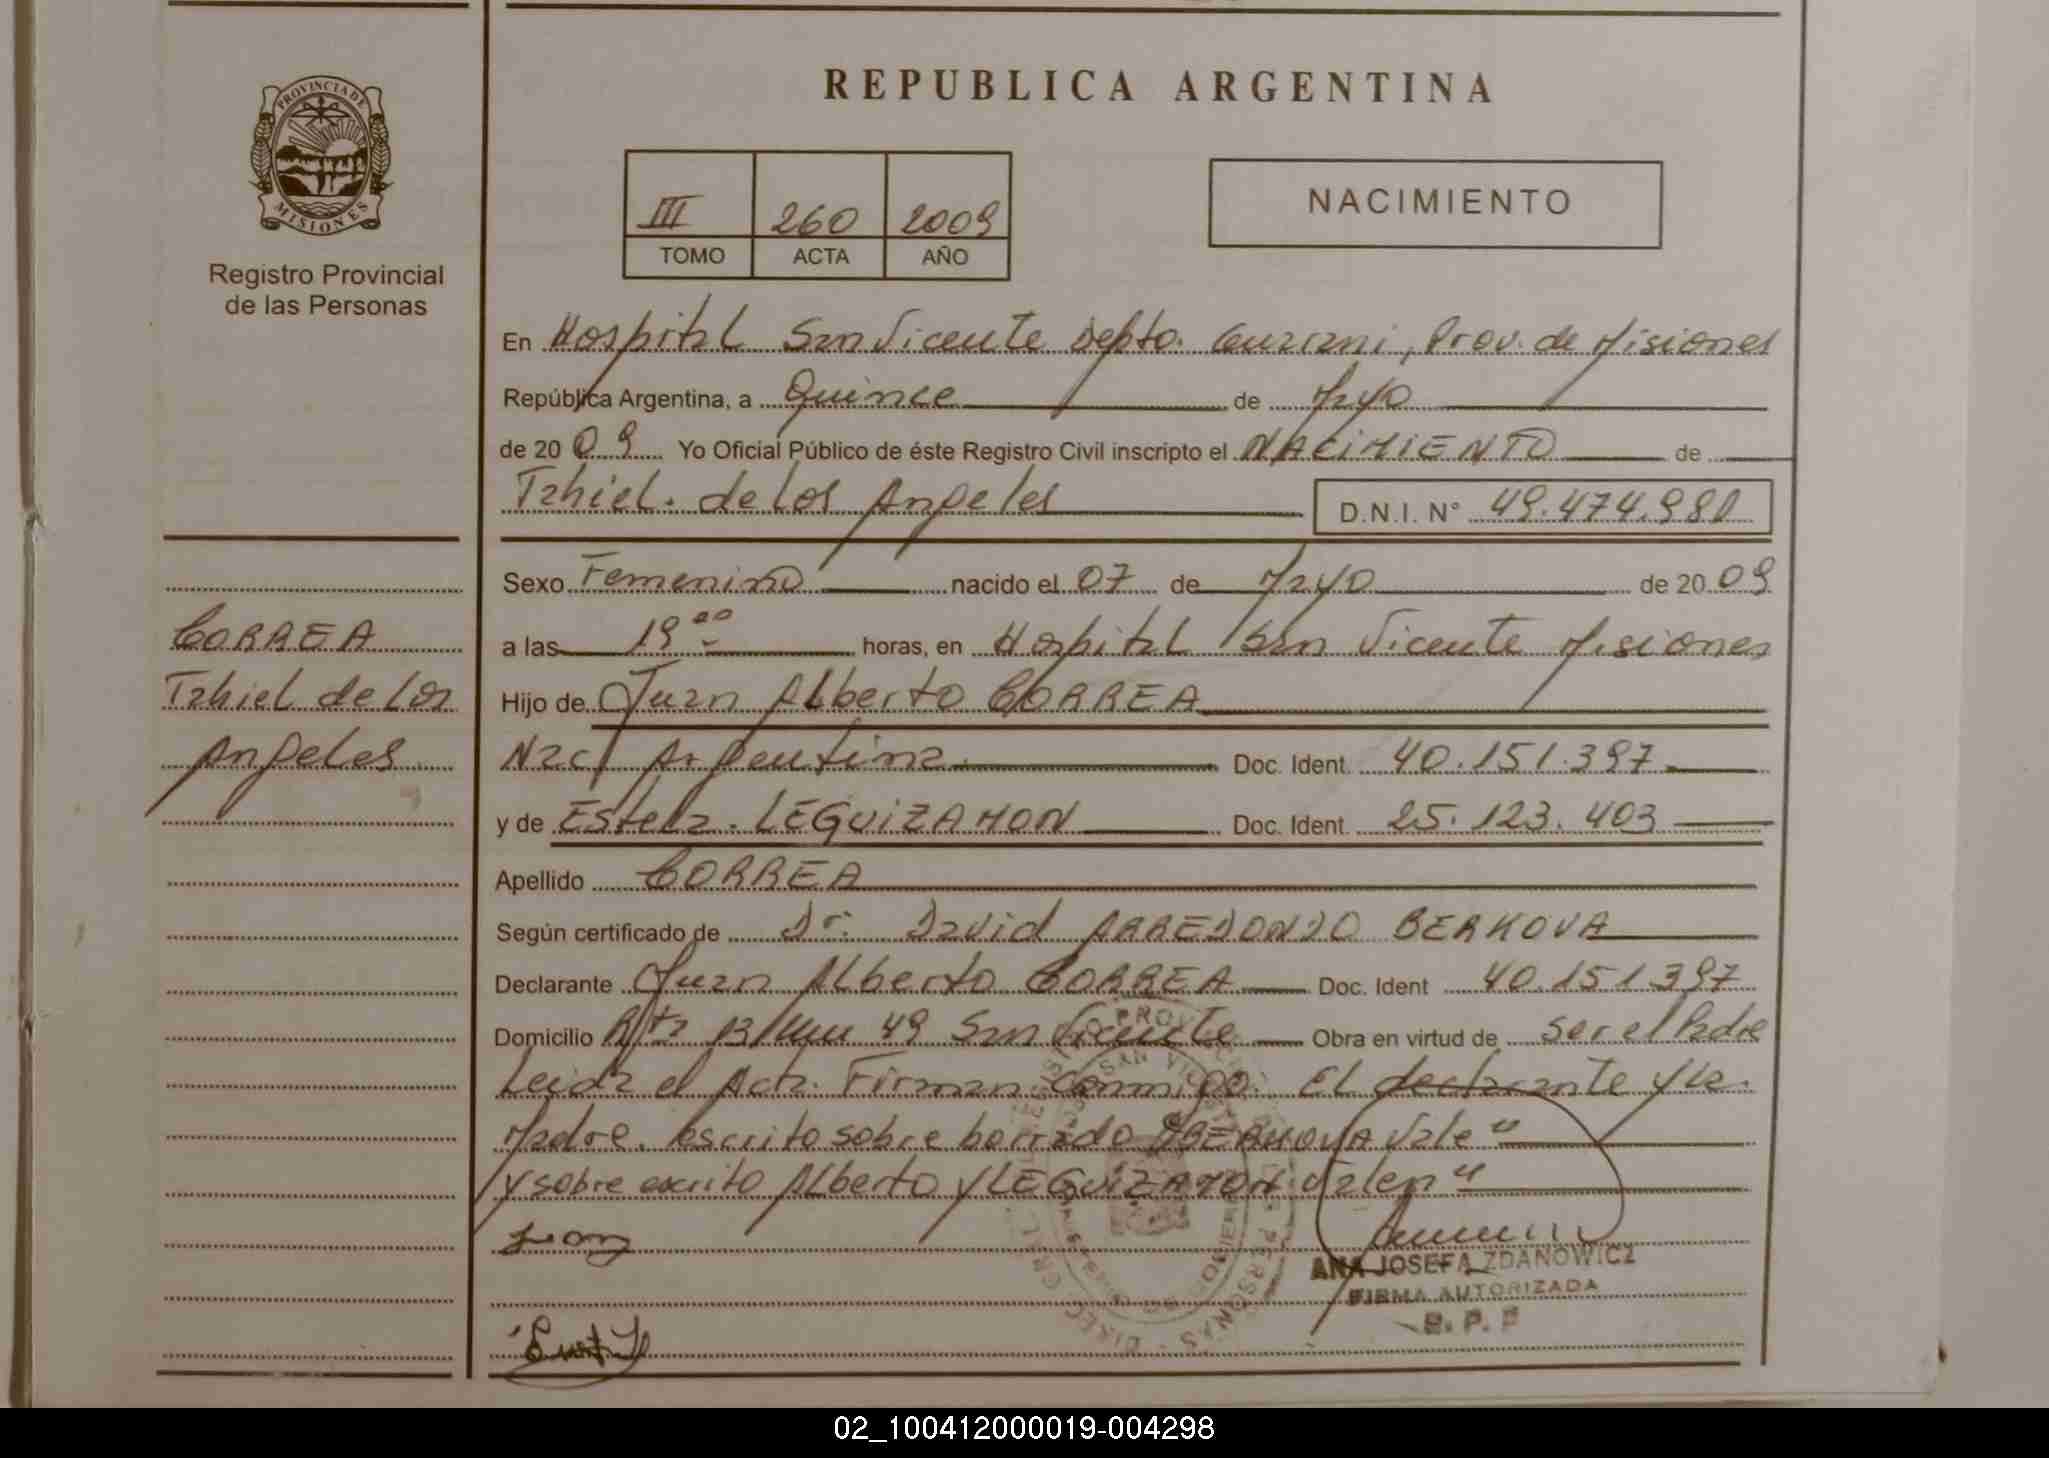 PROVINCIA DE
MISIONES
Registro Provincial
de las Personas
CORREA
Tahiel de los
Angeles
REPUBLICA ARGENTINA
III 260 2009
TOMO ACTA AÑO
NACIMIENTO
En Hospital San Vicente Depto. Guarani, Prov. de Misiones
República Argentina, a Quince de Mayo
de 20 09 Yo Oficial Público de éste Registro Civil inscripto el NACIMIENTO de
Tahiel. de los Angeles D.N.I. N° 49.474.980
Sexo Femenino nacido el 07 de Mayo de 20 09
a las 19 00 horas, en Hospital San Vicente Misiones
Hijo de Juan Alberto CORREA
Nac. Argentina Doc. Ident. 40.151.397
y de Estela. LEGUIZAMON Doc. Ident. 25.123.403
Apellido CORREA
Según certificado de Dr. David ARREDONDO BERKOVA
Declarante Juan Alberto CORREA Doc. Ident 40.151.397
Domicilio Rta 13 Km 49 San Vicente Obra en virtud de ser el Padre
Leida el Acta. Firman Conmigo. El declarante y la.
Madre. escrito sobre borrado BERKOVA Vale"
y sobre escrito Alberto y LEGUIZAMON. Valen"
ANA JOSEFA ZDANOWICZ
FIRMA AUTORIZADA
R. P. P
02_100412000019-004298